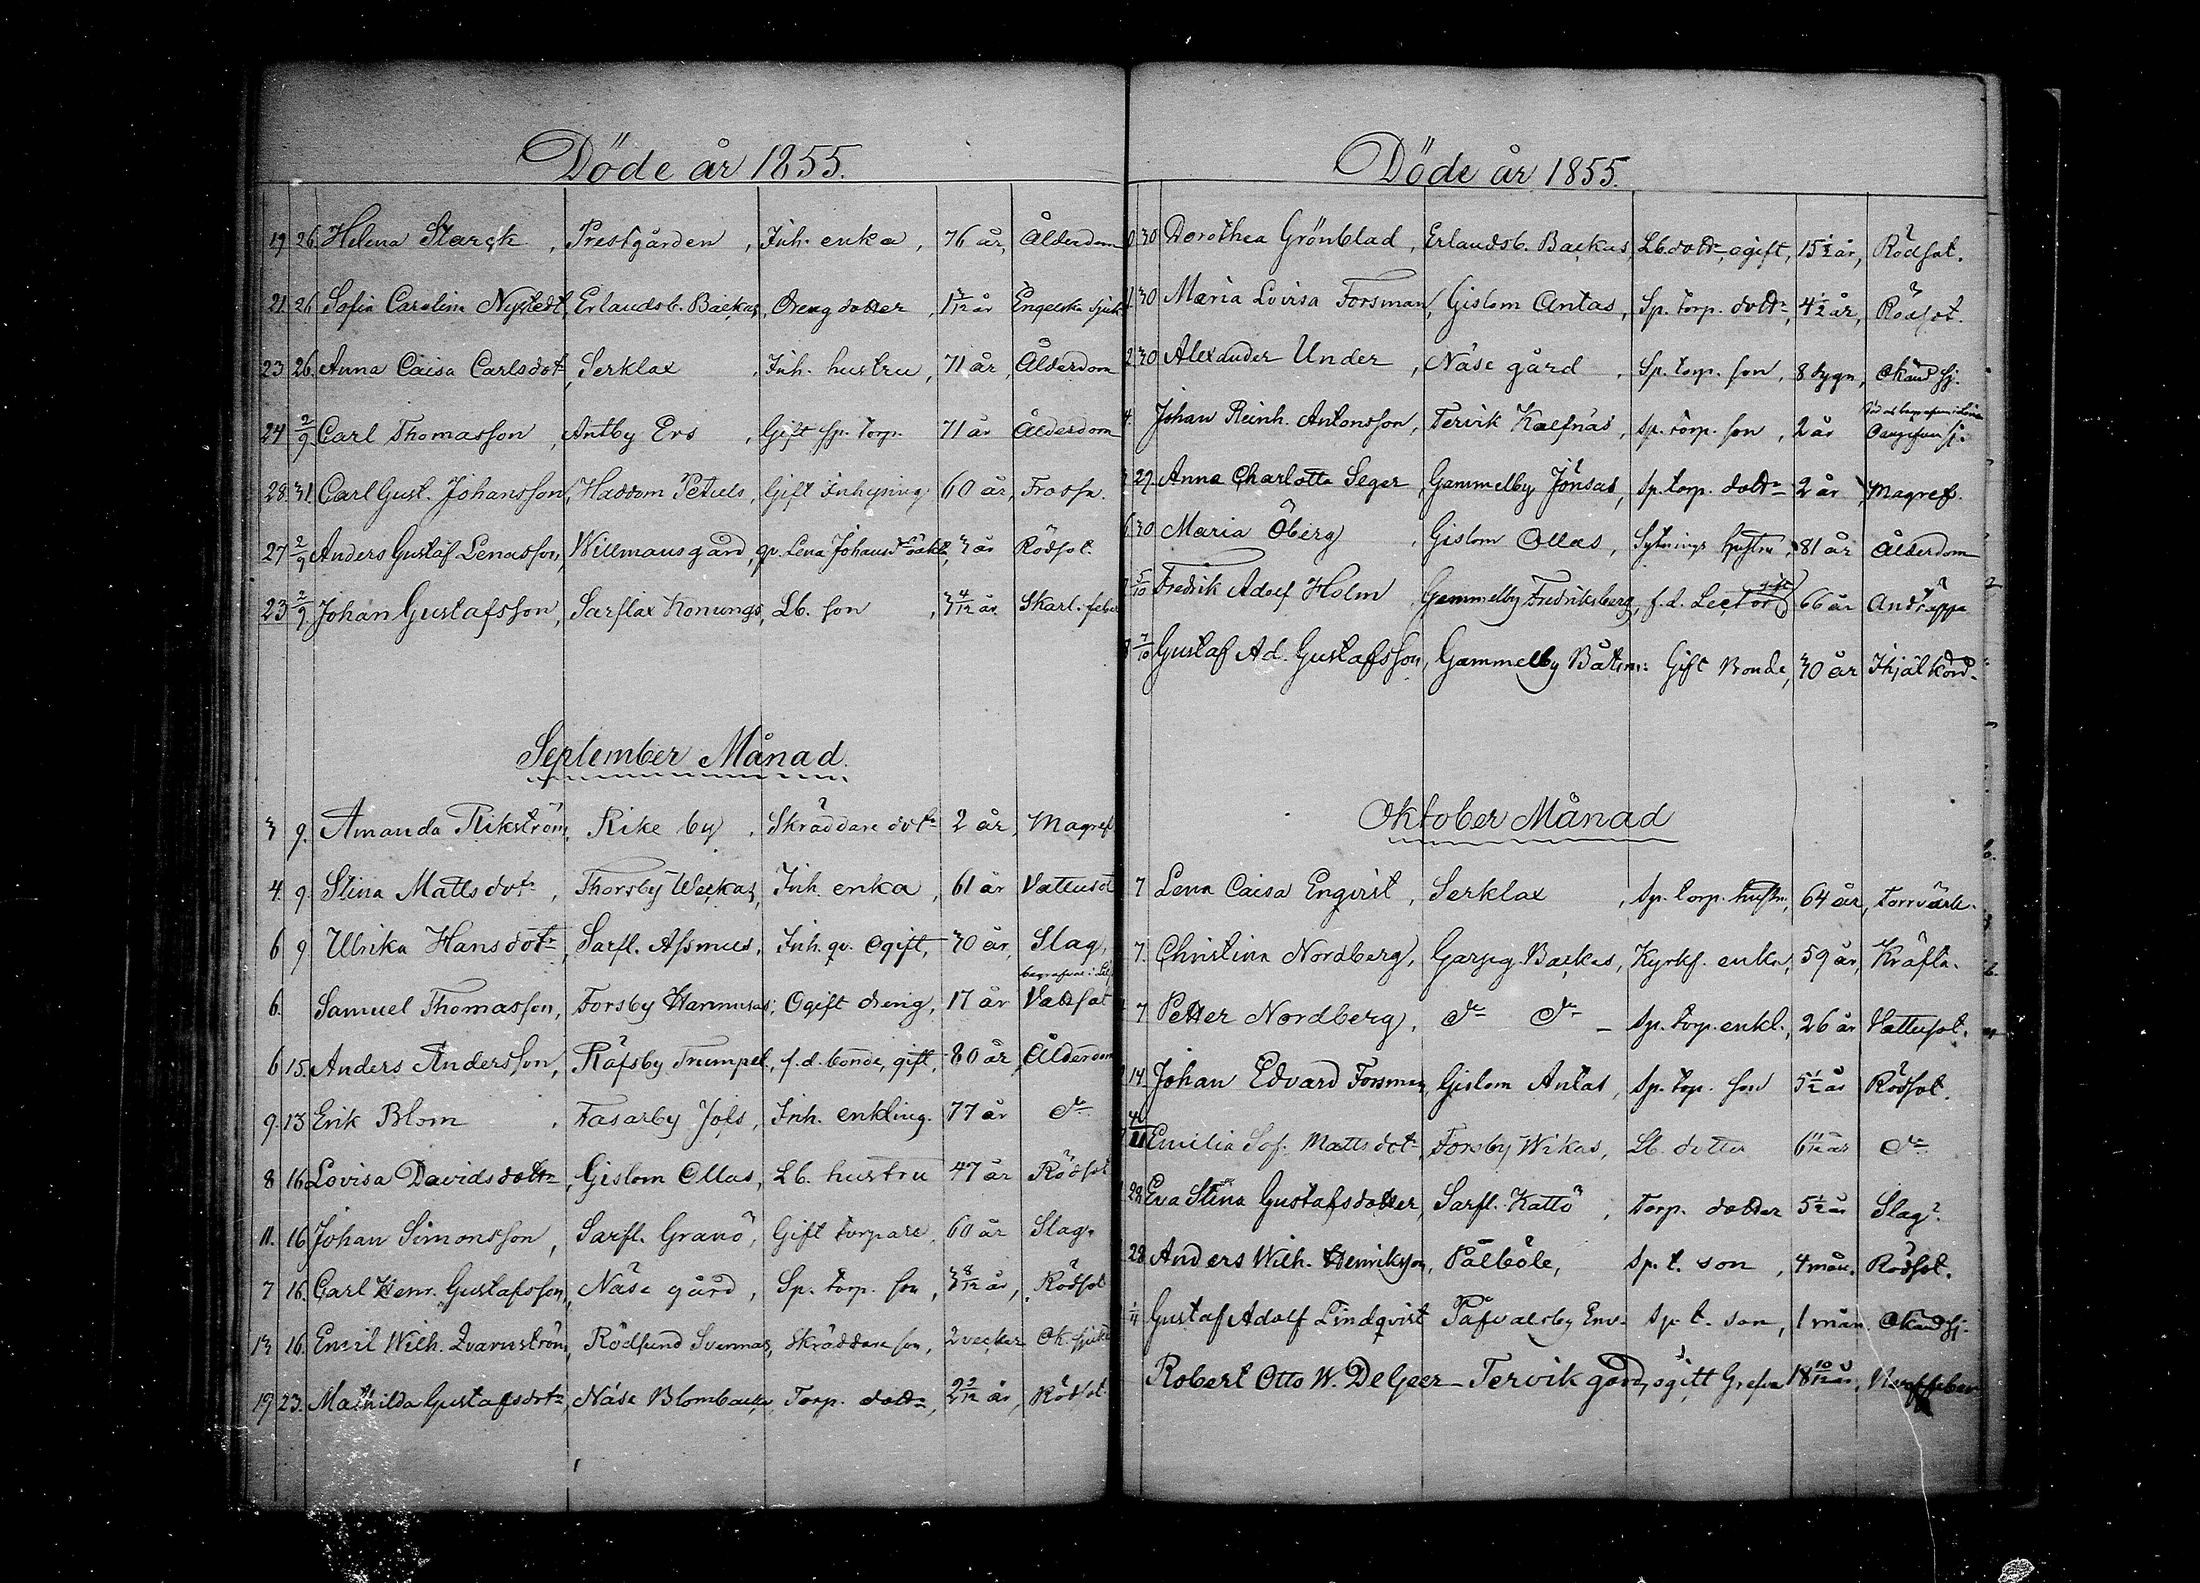 Döde år 1855.
19 26. Helena Starck, Prestgården, Inh. enka, 76 år, Ålderdom
21. 26 Sofia Carolina Nystedt, Erlandsb. Backas, Dreng dotter, 1 3/12 år Engelska sjuk
23 26. Anna Caisa Carlsdotr, Serklax, Inh. hustru, 71 år, Ålderdom
24 2/9 Carl Thomasson, Antby Ers, Gift sp. torp. 71 år Ålderdom
28. 31. Carl Gust. Johansson, Haddom Petuls, Gift Inhysing, 60 år, Frossa.
27 2/9 Anders Gustaf Lenasson, Willmansgård, qv. Lena Johansd. oäkta, 3 år Rödsot.
23 2/9 Johan Gustafsson, Sarflax Konungs, Lb. son, 3 4/12 år Skarl. feber
September Månad.
3 9. Amanda Rikström, Rike by, Skräddare dotr 2 år, Magref
4. 9. Stina Mattsdotr, Thorsby Weckas, Inh. enka, 61 år Vattusot
6 9 Ulrika Hansdotr, Sarfl. Assmus, Inh. qv. ogift, 30 år, Slag,
6. Samuel Thomasson, Forsby Hannusas, Ogift dreng, 17 år Vattsot
6 15. Anders Andersson, Räfsby Trumpet., f.d. bonde, gift, 80 år, Ålderdom
9. 13 Erik Blom, Fasarby Jofs, Inh. enkling. 77 år dr
8 16 Lovisa Davidsdottr, Gislom Ollas, Lb. hustru 47 år Rödsot
11. 16 Johan Simonsson, Sarfl. Granö, Gift torpare, 60 år Slag.
7 16. Carl Henr. Gustafsson, Näse gård, Sp. torp. son, 3 8/12 år, Rödsot
13 16. Emil Wilh. Qvarnström, Rödsund Svennas, Skräddare son, 2 veckor Ok. sjukd
19 23. Mathilda Gustafsdotr, Näse Blombacka, Torp. dottr, 2 2/12 år, Rödsot
Döde år 1855.
30 Dorothea Grönblad, Erlandsb. Backas, Lb. dottr, ogift, 15 1/2 år, Rödsot.
30 Maria Lovisa Forsman, Gislom Antas, Sp. torp. dottr, 4 1/2 år, Rödsot.
30 Alexander Under, Näse gård, Sp. torp. son, 8 dygn, Okänd sj.
4. Johan Reinh. Antonsson, Tervik Kalfnäs, Sp. torp. son, 2 år Oangifven sj.
29. Anna Charlotta Seger, Gammelby Jönsas, sp. torp. dottr 2 år, Magref.
30 Maria Öberg, Gislom Ollas, Sytnings hustru, 81 år Ålderdom
5/10 Fredrik Adolf Holm Gammelby Fredriksberg, f.d. Lector gift 66 år Andtäppa
7/10 Gustaf Ad. Gustafsson, Gammelby Båtsm: Gift Bonde, 30 år Ihjälkörd.
Oktober Månad
7 Lena Caisa Enqvist, Serklax, Sp. torp. hustru, 64 år, Torrvärk.
7. Christina Nordberg, Garpg. Backas, Kyrkf. enka, 59 år, Kräfta.
7 Petter Nordberg, dr dr sp. torp. enkl., 26 år Vattusot.
14. Johan Edvard Forsman, Gislom Antas, sp. torp. son 5 1/2 år Rödsot.
4/11 Emilia Sof. Mattsdotr Forsby Wikas, Lb. dotter 6 11/12 år dr
28. Eva Stina Gustafsdotter, Sarfl. Kattö, Torp. dotter 5 1/2 år Slag?
28. Anders Wilh. Henriksson, Påleböle, Sp. t. son, 4 mån. Rödsot.
1/11 Gustaf Adolf Lindqvist Påfvalsby Ers. Sp. t. son, 1 mån. Okänd sj.
Robert Otto W. De Geer Tervik gård, ogift Grefve 18 10/12 år, Nerffeber